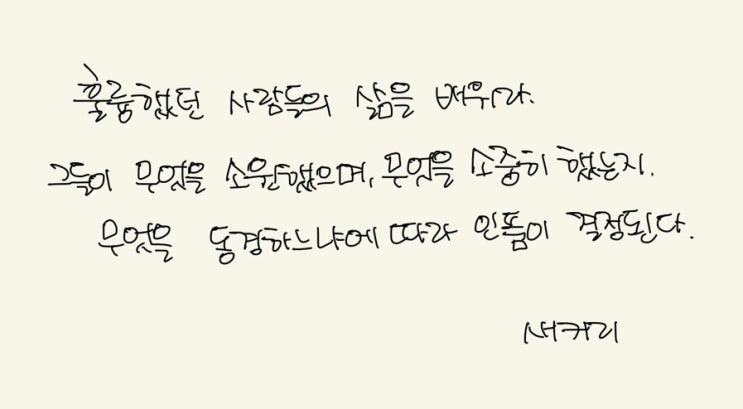 훌륭했던 사람들의 삶을 배워라.
그들이 무엇을 소원했으며, 무엇을 소중히 했는지.
무엇을 동경하느냐에 따라 인품이 결정된다.
새커리